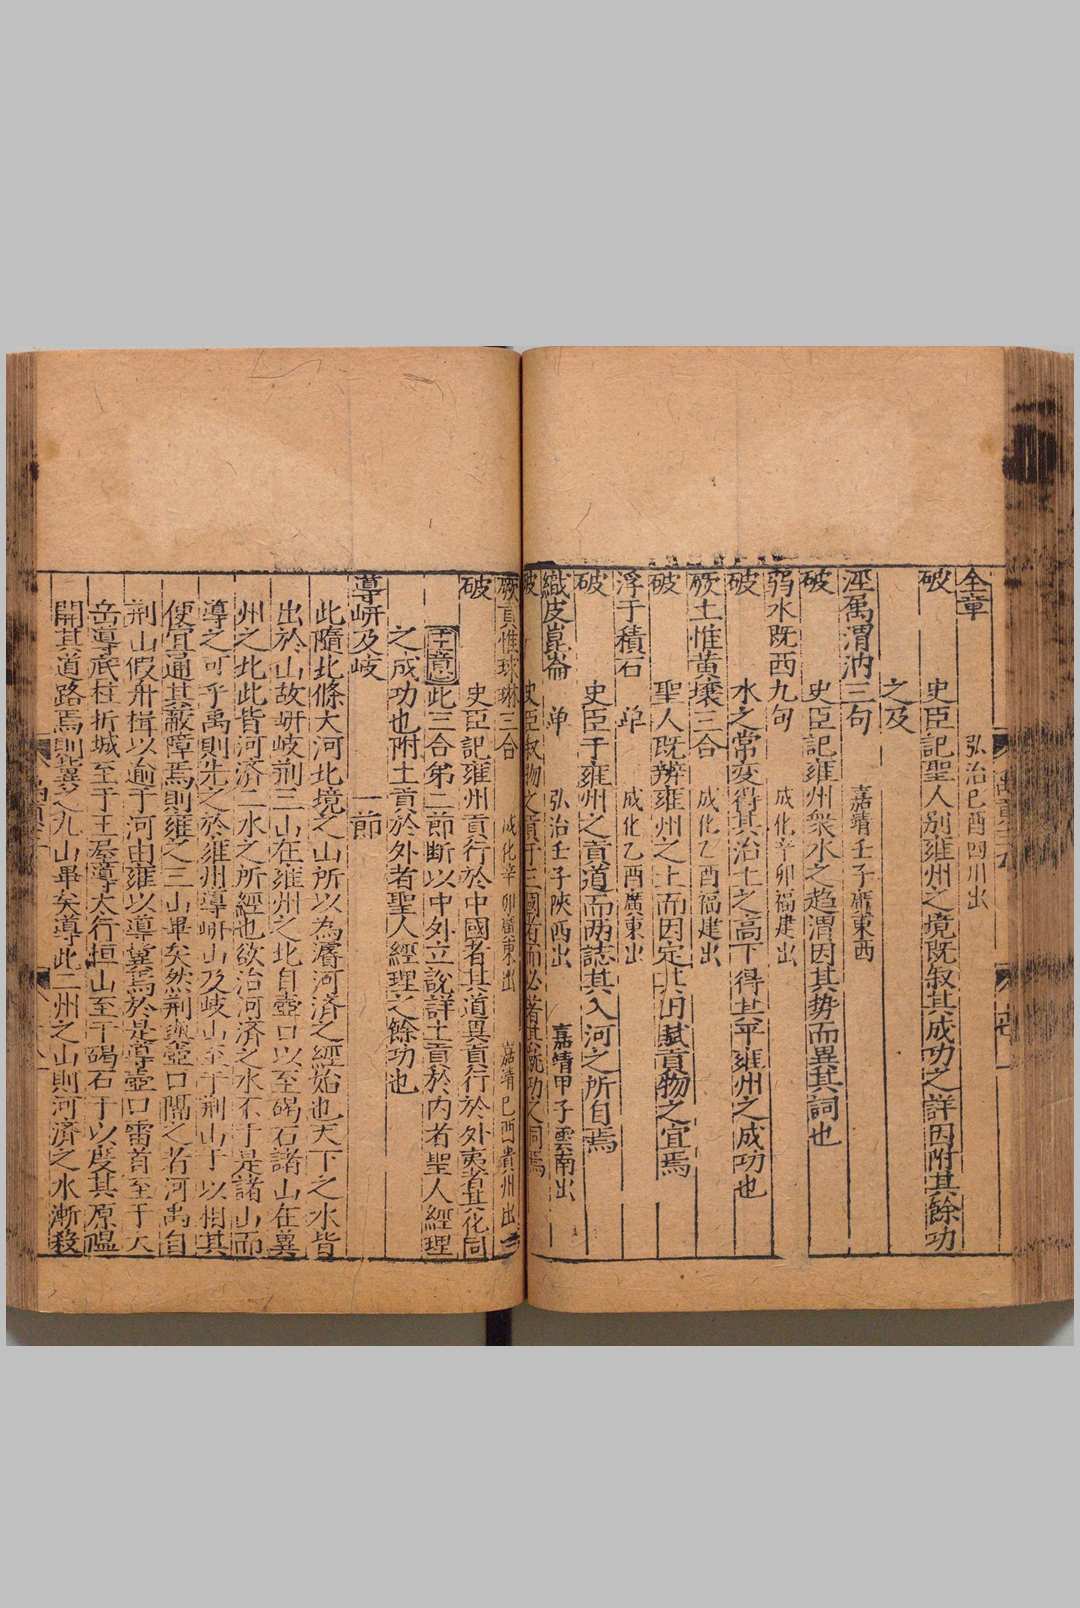 全章　弘治己酉四川出
破　史臣記聖人别雍州之境既叙其成功之詳因附其餘功
之及
涇属渭汭三句　嘉靖壬子廣東西
破　史臣記雍州衆水之趋渭因其势而異其詞也
弱水既西九句　成化辛卯福建出
破　水之常变得其治土之高下得其平雍州之成功也
厥土惟黄壤三合　成化乙酉福建出
破　聖人既辨雍州之土而因定其田賦貢物之宜焉
浮于積石　单　成化乙酉廣東出
破　史臣于雍州之貢道而两誌其入河之所自焉
織皮崑崙　单　弘治壬子陜西出　嘉靖甲子雲南出
破　史臣叙物之貢于三國者而必著其既功之詞焉
厥貢惟球琳三合　成化辛卯廣東出　嘉靖己酉貴州出
破　史臣記雍州貢行於中國者其道異貢行於外夷者其化同
主意此三合第一節断以中外立說詳土貢於内者聖人經理
之成功也附土貢於外者聖人經理之餘功也
導岍及岐　一節
此隨北條大河北境之山所以為濬河済之經始也天下之水皆
出於山故岍岐荊三山在雍州之北自壺口以至碣石諸山在冀
州之北此皆河済二水之所經也欲治河済之水不于是諸山而
導之可乎禹則先之於雍州導岍山及岐山至于荊山于以相其
便宜通其蔽障焉則雍之三山畢矣然荊與壺口隔之者河禹自
荊山假舟楫以逾于河由雍以導冀焉於是導壺口雷首至于太
岳導底柱折城至于王屋導太行恒山至于碣石于以度其原隰
開其道路焉則冀之九山畢矣導此二州之山則河済之水漸殺